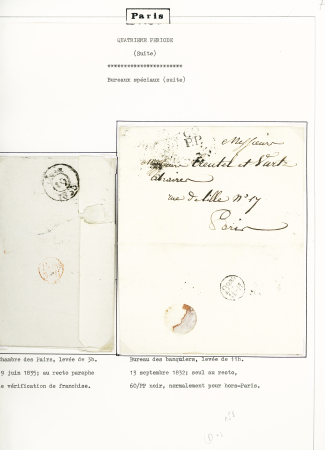 Paris
QUATRIEME PERIODE
(Suite)
***********************
Bureaux spéciaux (suite)
PP
Messieurs
Treutel et Wurtz
Libraires
rue de Lille N° 17
Paris
Chambre des Pairs, levée de 3h.
9 juin 1835; au recto paraphe
e vérification de franchise.
Bureau des banquiers, levée de 11h.
13 septembre 1832; seul au recto,
60/PP noir, normalement pour hors-Paris.